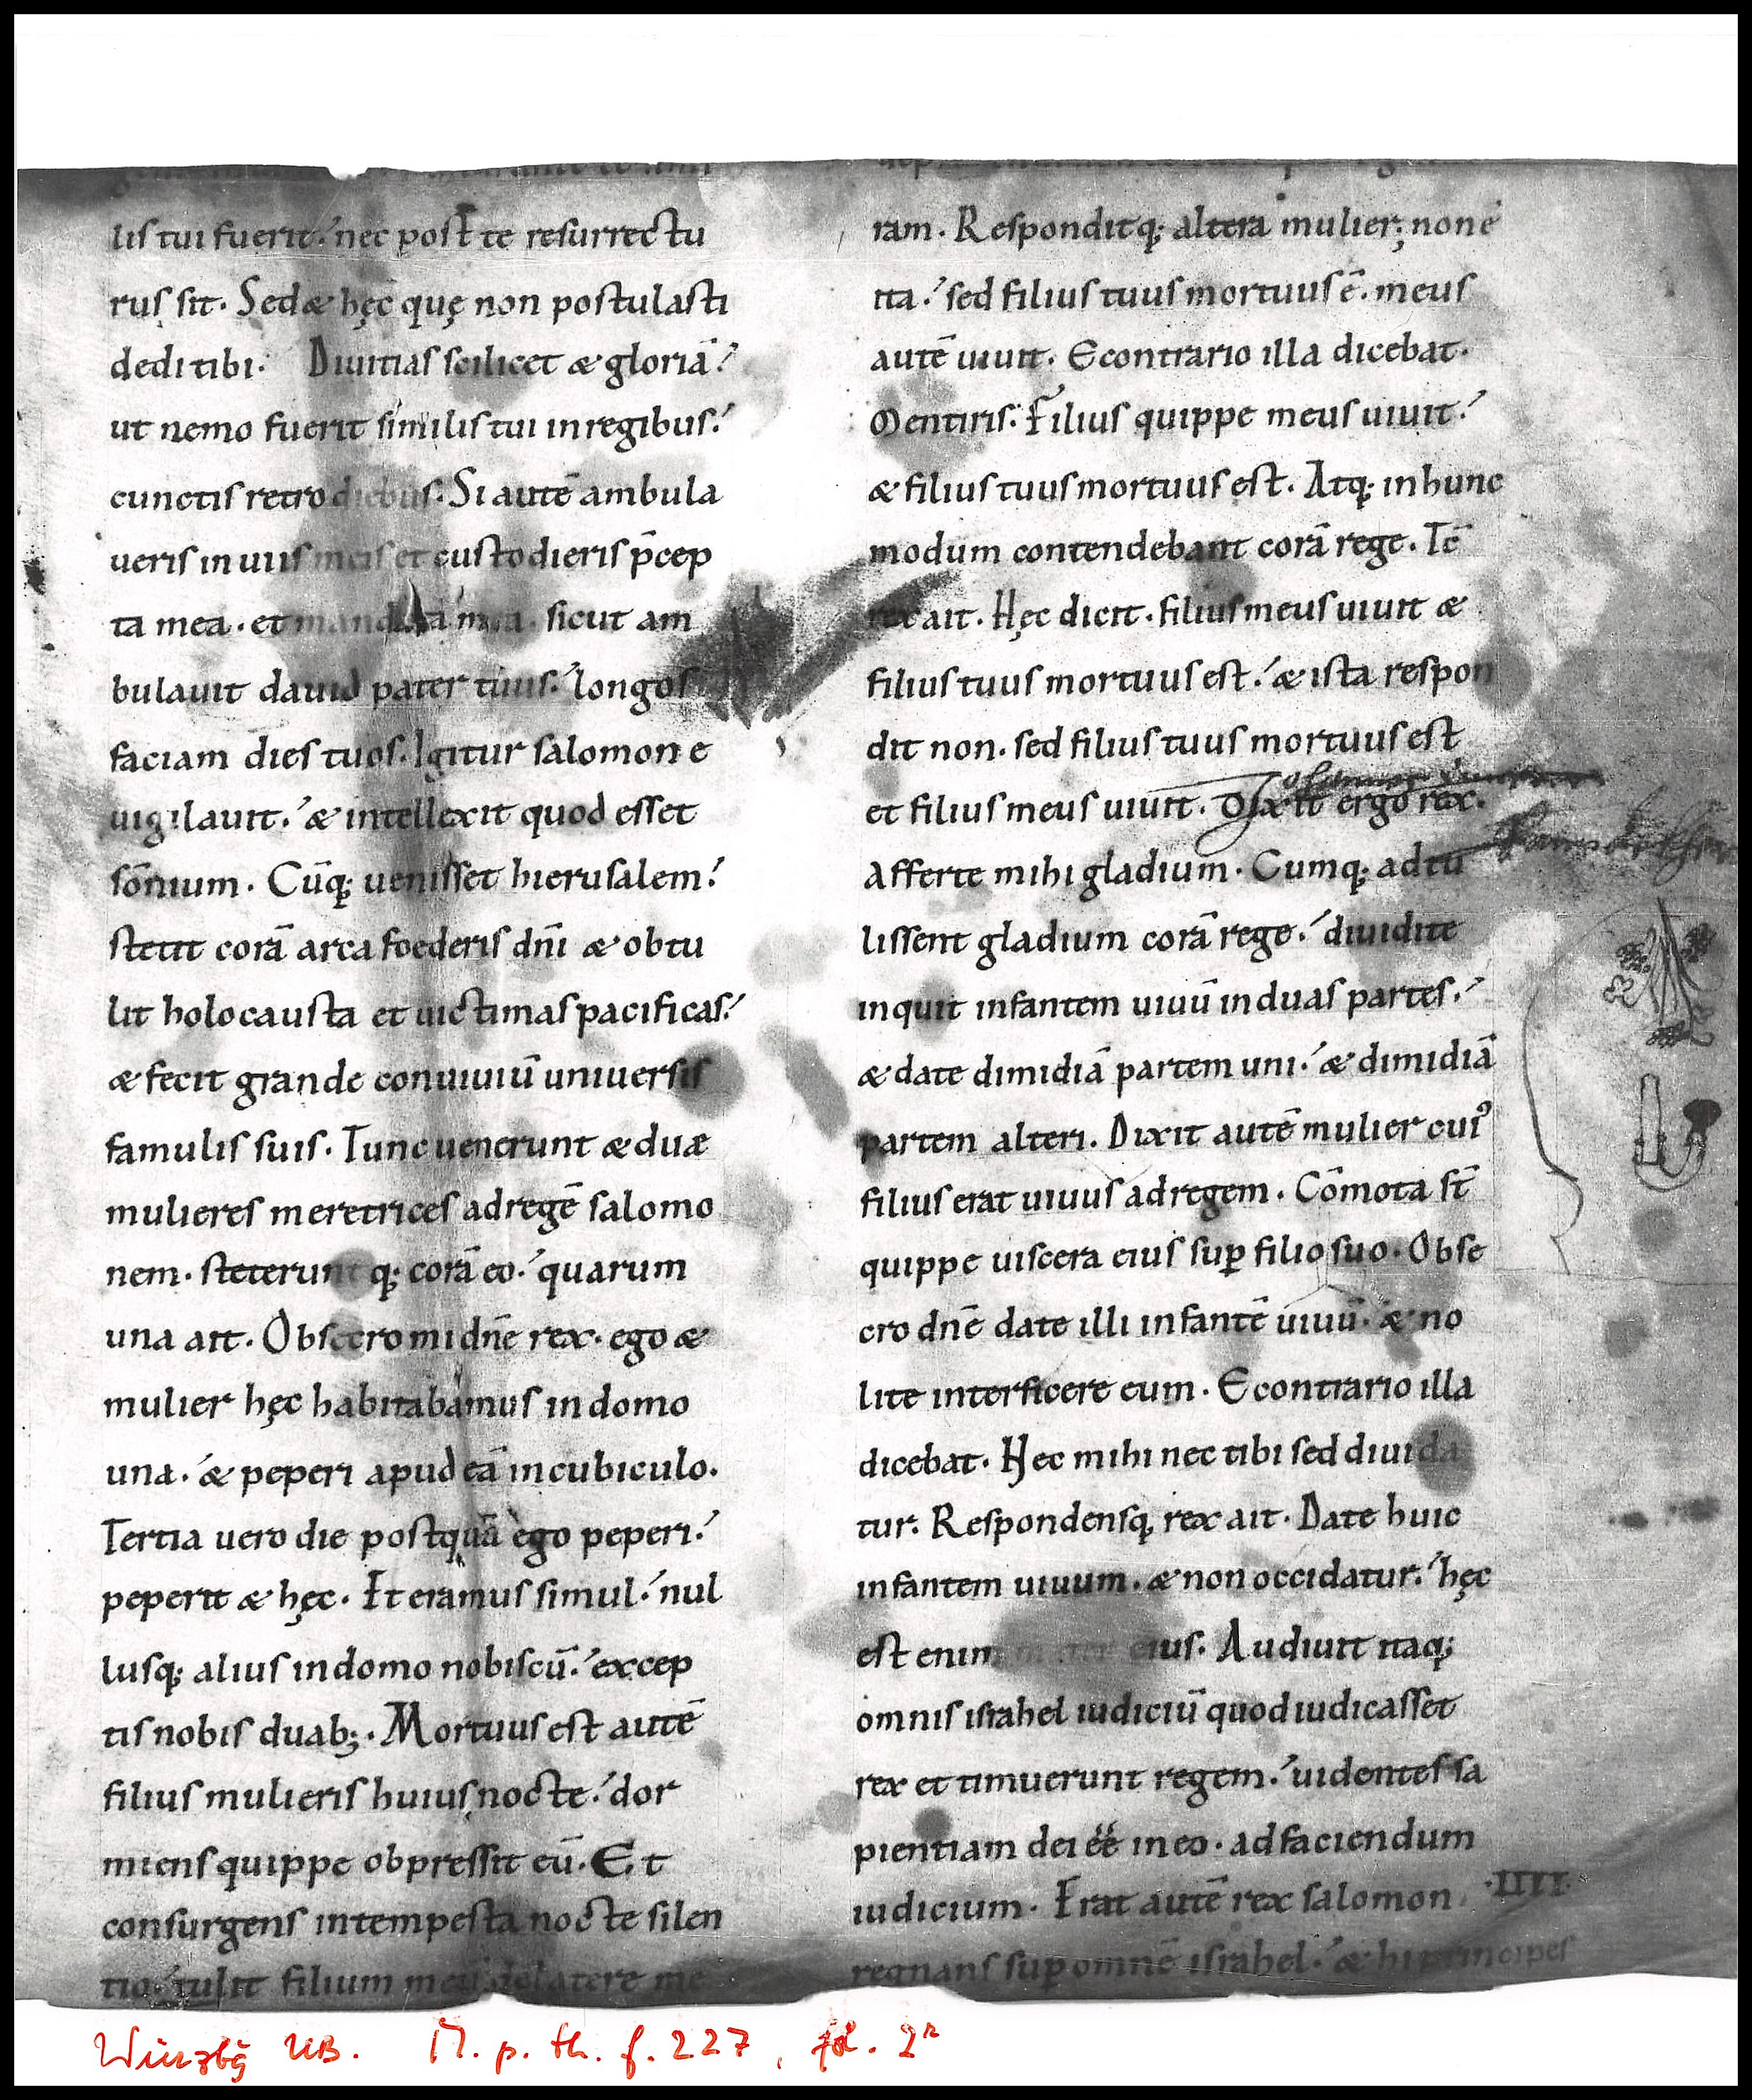 lis tui fuerit. nec post te resurrectu
rus sit. Sed & hęc quę non postulasti
dedi tibi. Diuitias scilicet & gloriā.
ut nemo fuerit similis tui in regibus.
cunctis retro diebus. Si autē ambula
ueris in uiis meis et custodieris p̄cep
ta mea. et mandata mea. sicut am
bulauit dauid pater tuus. longos
faciam dies tuos. Igitur salomon e
uigilauit. & intellexit quod esset
sōnium. Cūq; uenisset hierusalem.
stetit corā arca foederis dn̄i & obtu
lit holocausta et uictimas pacificas.
& fecit grande conuiuiū uniuersis
famulis suis. Tunc uenerunt & duæ
mulieres meretrices ad regē salomo
nem. steterunt q; corā eo. quarum
una ait. Obsecro mi dn̄e rex. ego &
mulier hęc habitabamus in domo
una. & peperi apud eā in cubiculo.
Tertia uero die postquā ego peperi.
peperit & hęc. Et eramus simul. nul
lusq; alius in domo nobiscū. excep
tis nobis duab;. Mortuus est autē
filius mulieris huius nocte. dor
miens quippe obpressit eū. Et
consurgens intempesta nocte silen
tio. tulit filium meū de latere me
ram. Responditq; altera mulier; non ē
ita. sed filius tuus mortuus ē. meus
autē uiuit. Econtrario illa dicebat.
Mentiris. Filius quippe meus uiuit.
& filius tuus mortuus est. Atq; in hunc
modum contendebant corā rege. Tc̄
rex ait. Hęc dicit. filius meus uiuit &
filius tuus mortuus est. & ista respon
dit non. sed filius tuus mortuus est
et filius meus uiuit. Dixit ergo rex.
Afferte mihi gladium. Cumq; adtu
lissent gladium corā rege. diuidite
inquit infantem uiuū in duas partes.
& date dimidiā partem uni. & dimidiā
partem alteri. Dixit autē mulier cuiꝰ
filius erat uiuus ad regem. Cōmota st̄
quippe uiscera eius suꝑ filio suo. Obse
cro dn̄e date illi infantē uiuū. & no
lite interficere eum. Econtrario illa
dicebat. Nec mihi nec tibi sed diuida
tur. Respondensq; rex ait. Date huic
infantem uiuum. & non occidatur. hęc
est enim mater eius. Audiuit itaq;
omnis israhel iudiciū quod iudicasset
rex et timuerunt regem. uidentes sa
pientiam dei ēē in eo. ad faciendum
iudicium. Erat autē rex salomon .IIII.
regnans suꝑ omnē israhel. & hi principes
Würzbg UB. M. p. th. f. 227, fol. 2r